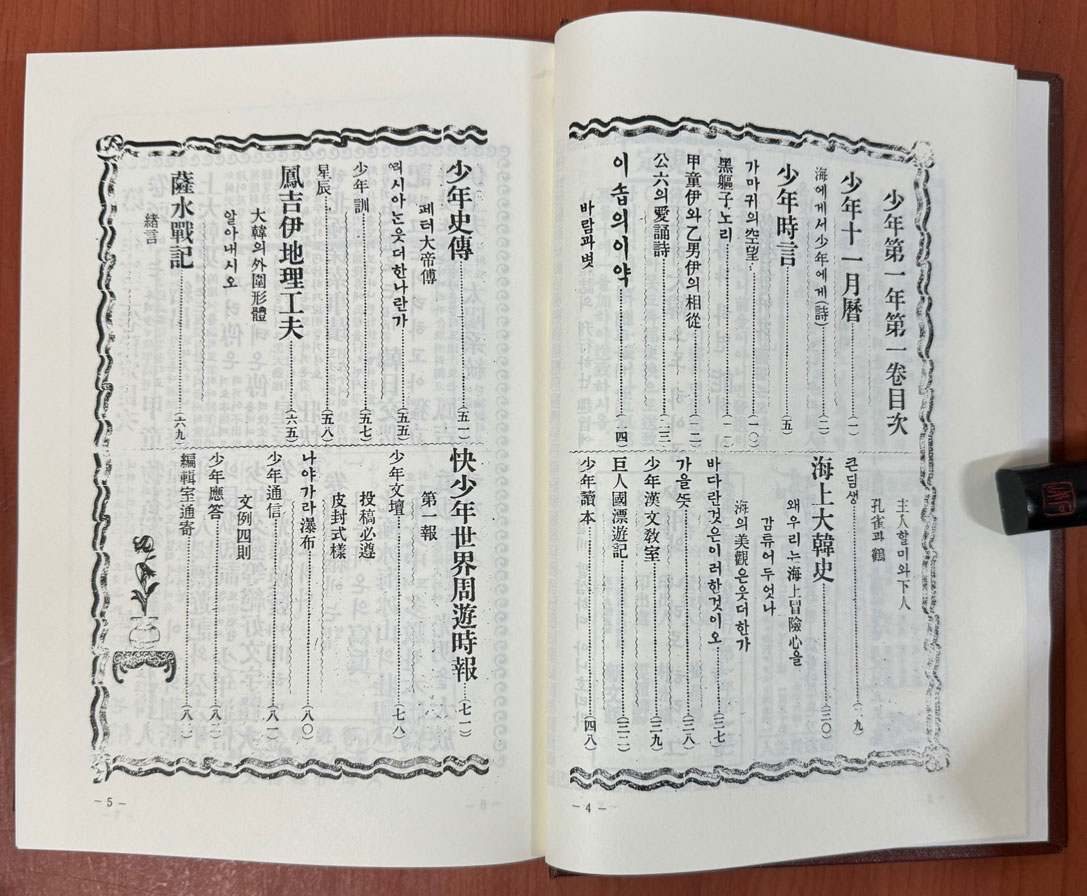 少年第一年第一卷目次
少年十一月曆(一)
海에게서少年에게(詩)(二)
少年時言(五)
가마귀의空望(一〇)
黑軀子노리(一一)
甲童伊와乙男伊의相從(一二)
公六의愛誦詩(一三)
이솝의이약(一四)
바람과볏
主人할미와下人
孔雀과鶴
큰딤생(一九)
海上大韓史(三〇)
왜우리는海上冒險心을
감튜어두엇나
海의美觀은읏더한가
바다란것은이러한것이오(三七)
가을뜻(三八)
少年漢文敎室(三九)
巨人國漂遊記
少年讀本(四八)
－4－
少年史傳(五一)
페터大帝傳
러시아는읏더한나란가(五五)
少年訓(五七)
星辰(五八)
鳳吉伊地理工夫(六五)
大韓의外圍形體
알아내시오
薩水戰記(六九)
緖言
快少年世界周遊時報(七一)
第一報
少年文壇(七八)
投稿必遵
皮封式樣
나야가라瀑布(八〇)
少年通信(八一)
文例四則
少年應答(八二)
編輯室通寄(八二)
－5－